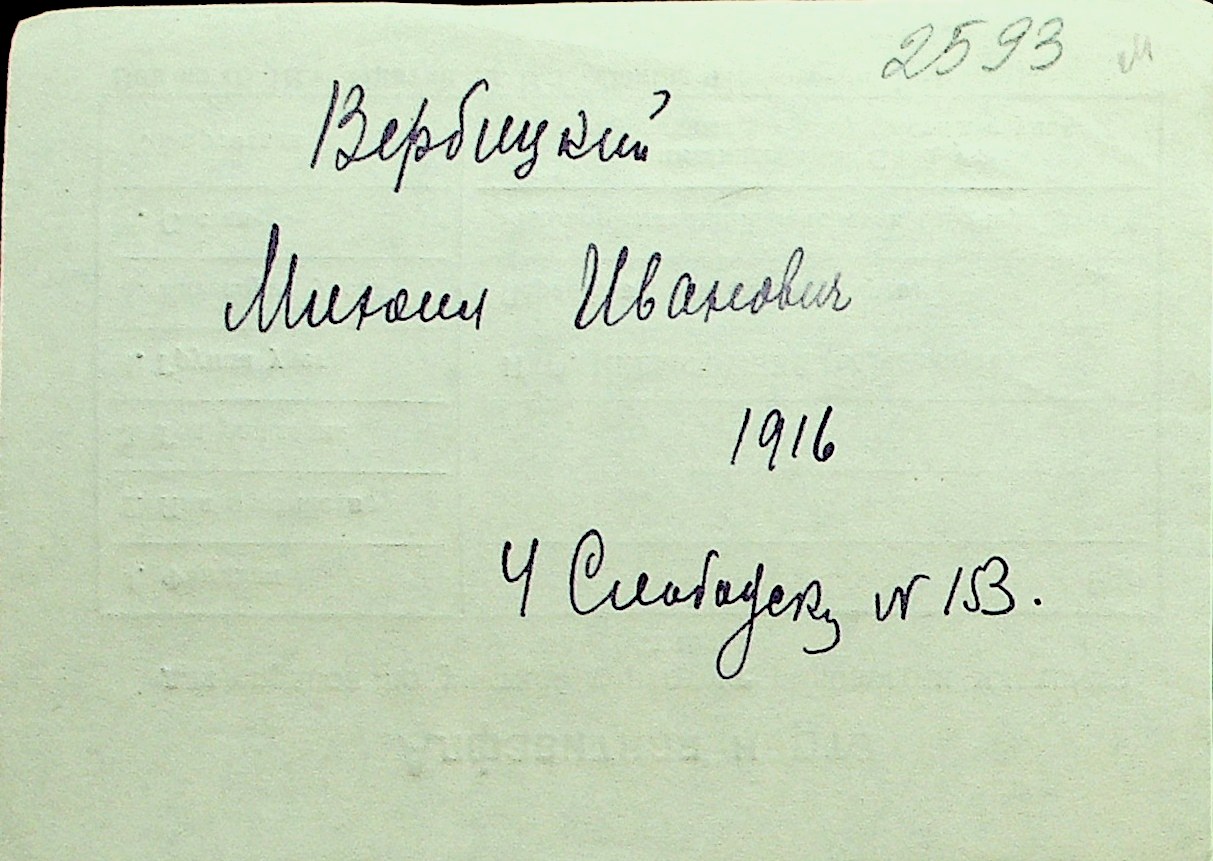 2593
Вербицкий
Михаил Иванович
1916
4 Слободск, № 153.